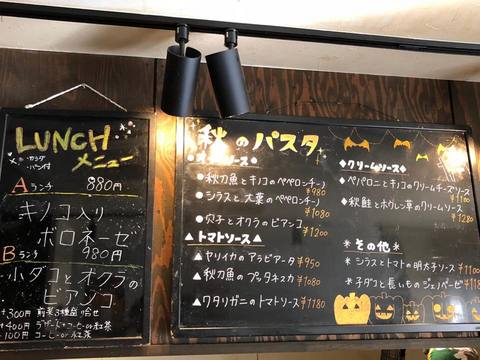 LUNCH
メニュー
Aランチ 880円
キノコ入り
ボロネーゼ
Bランチ 980円
小ダコとオクラの
ビアンコ
+300円 前菜3種盛り合せ
+400円 デザート+コーヒーor紅茶
+100円 コーヒーor紅茶
秋のパスタ
●秋刀魚とキノコのペペロンチーノ
¥980
●シラスと大葉のペペロンチーノ
¥1080
●穴子とオクラのビアンコ
¥1200
▲トマトソース▲
▲ヤリイカのアラビアータ ¥950
▲秋刀魚のプッタネスカ
¥1080
▲ワタリガニのトマトソース ¥1180
◆クリームソース◆
◆ペパロニとキノコのクリームチーズソース
¥1100
◆秋鮭とホウレン草のクリームソース
¥1280
＊その他＊
＊シラスとトマトの明太子ソース ¥1100
＊子ダコと長いものジェノベーゼ